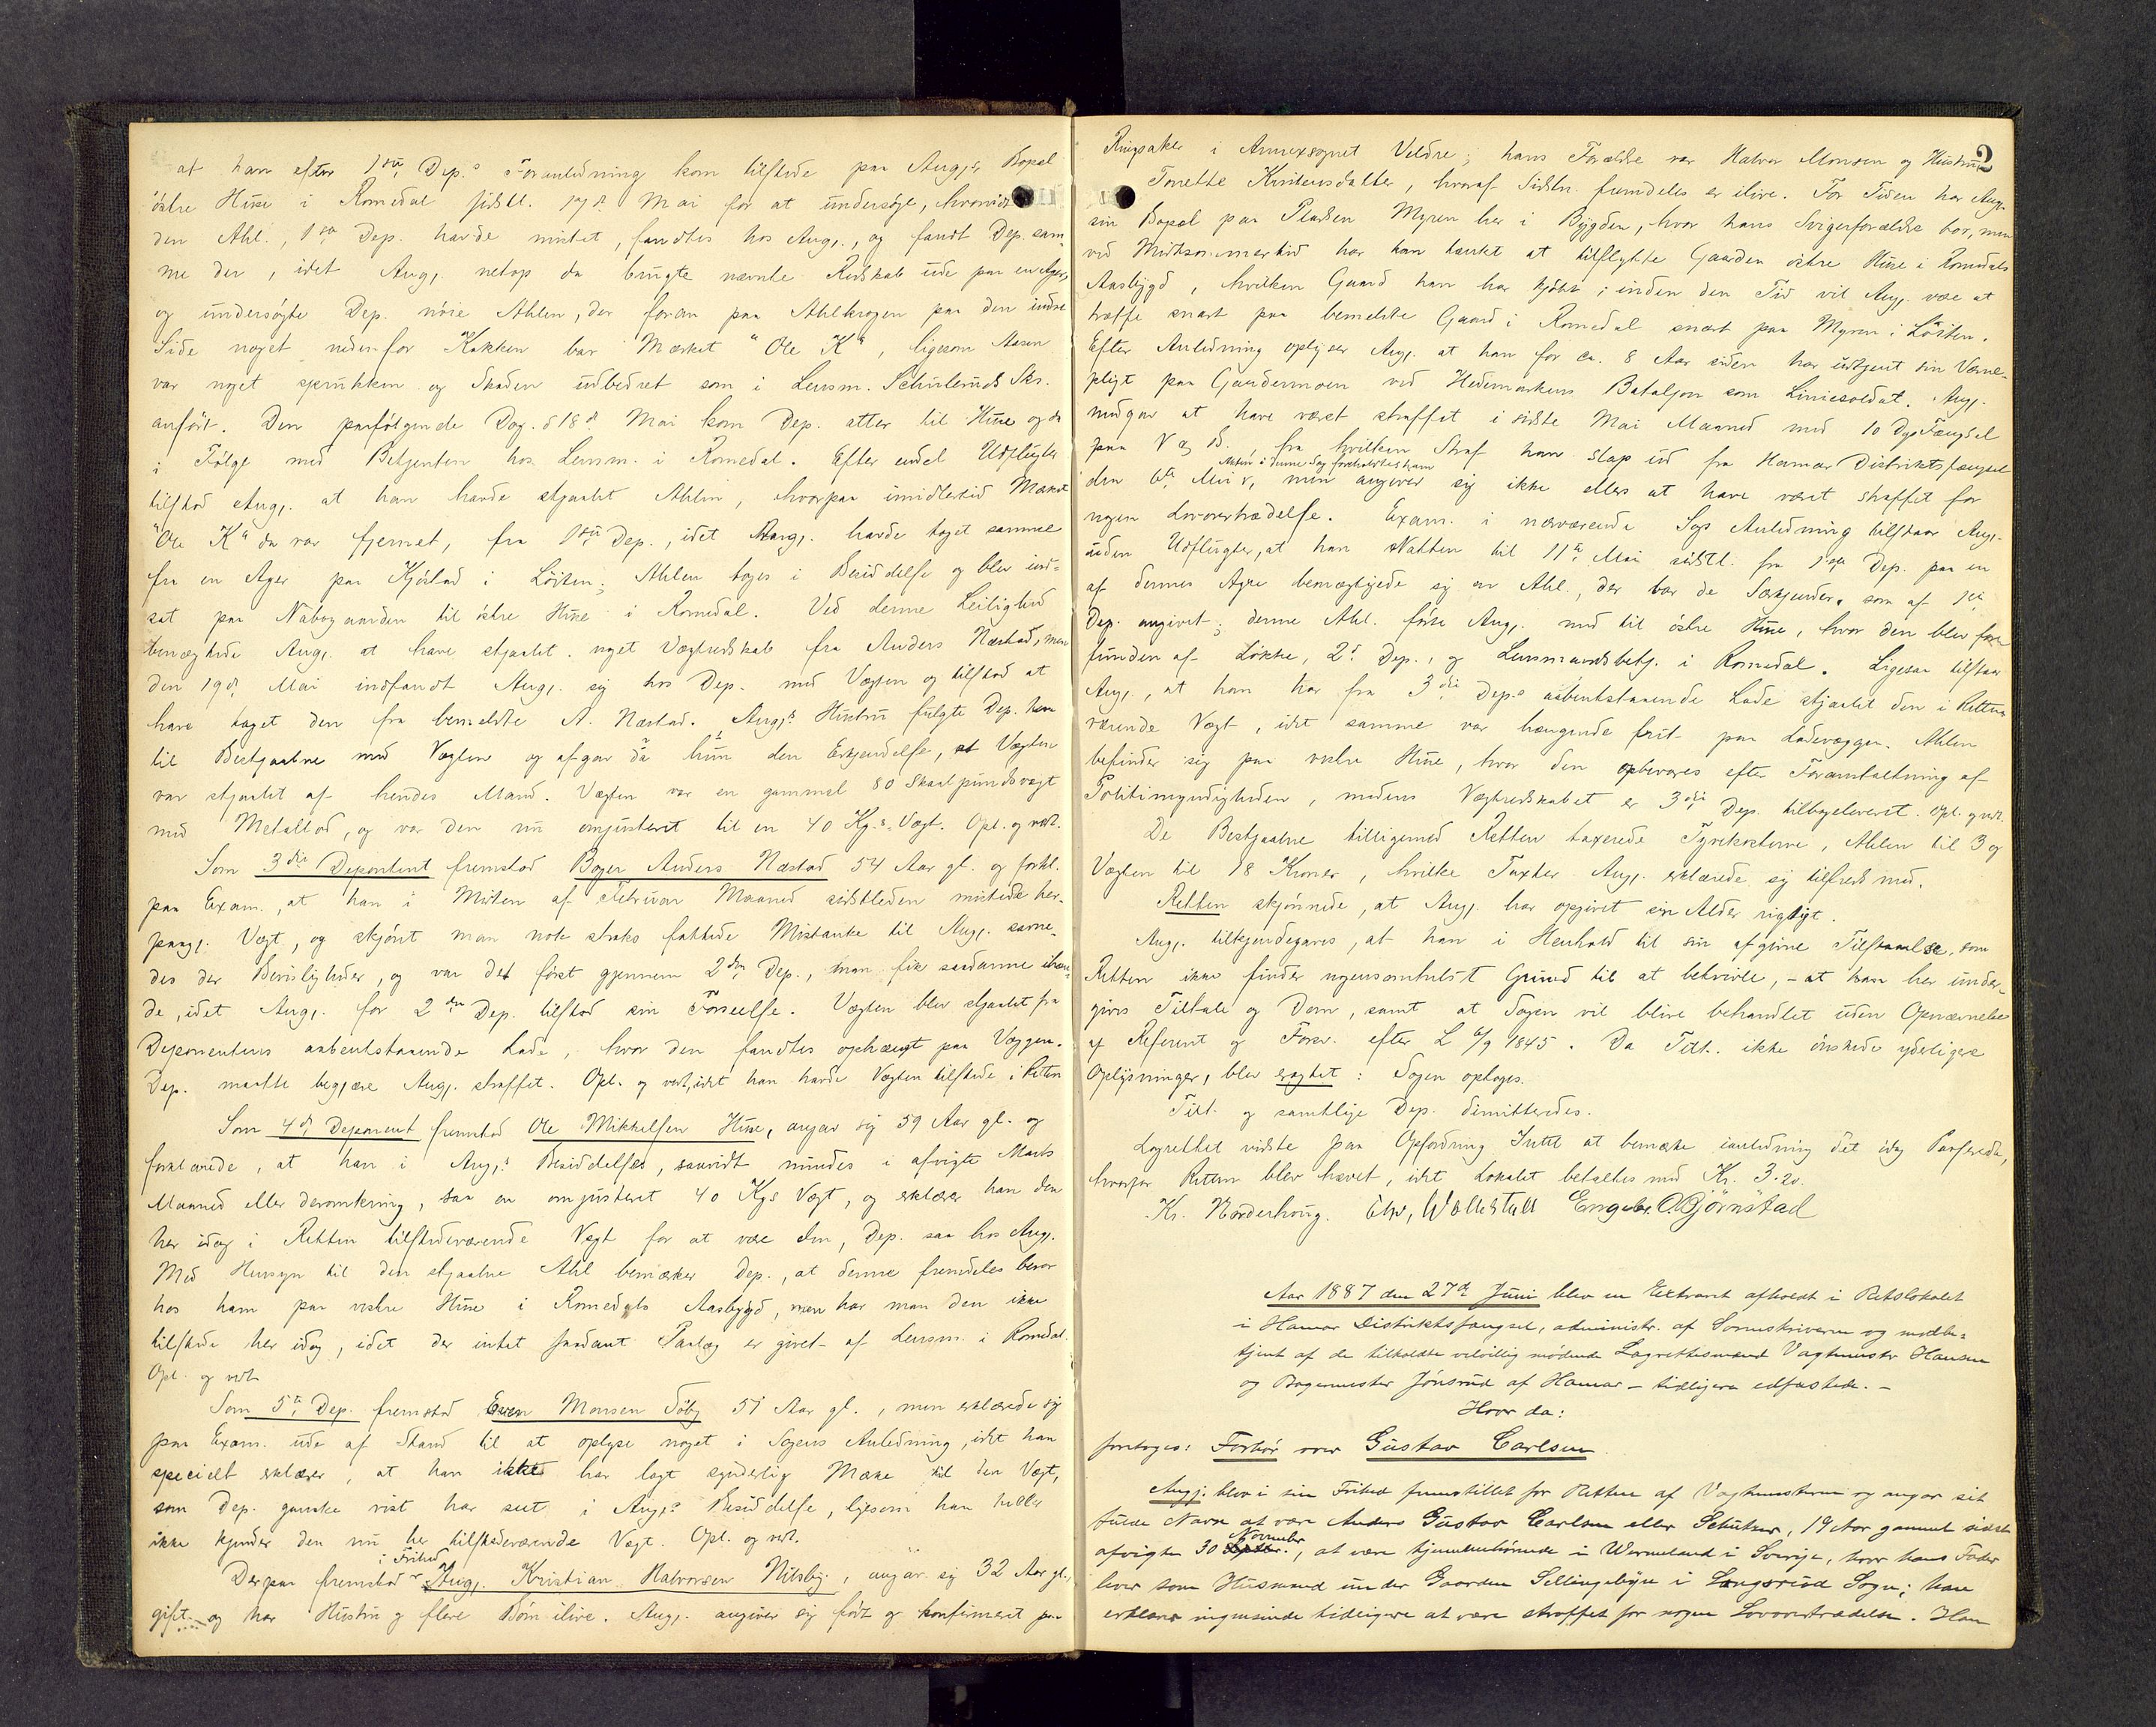 at han efter 1ste Dep.s Foranledning kom tilstede paa Angj.s Bopæl
östre Hüse i Romedal sidstl. 17de Mai for at undersöge, hvorvidt
den Ahl., 1ste Dep. havde mistet, fandtes hos Angj., og fandt Dep. sam-
me der, idet Angj. netop da brugte nævnte Redskab ude paa en Ager,
og undersögte Dep. nöie Ahlen, der foran paa Ahlkrogen paa den indre
Side noget nedenfor Kakken bar Mærket "Ole K", ligesom Aasen
var noget sprukken og Skaden udbedret som i Lensm. Schulruds Skr.
anfört. Den paafölgende Dag d 18de Mai kom Dep. atter til Hüse og da
i Fölge med Betjenten hos Lensm. i Romedal. Efter endel Udflugter
tilstod Angj. at han havde stjaalet Ahlen, hvorpaa imidlertid Mærket
"Ole K" da var fjernet, fra 1ste Dep., idet Angj. havde taget samme
fra en Ager paa Kjörlad i Löiten; Ahlen toges i Besiddelse og blev ind-
sat paa Nabogaarden til östre Hüse i Romedal. Ved denne Leilighed
benægtede Angj. at have stjaalet noget Vægtredskab fra Anders Næstad, men
den 19de Mai indfandt Angj. sig hos Dep. med Vægten og tilstod at
have taget den fra bemeldte A. Næstad. Angj.s Hustru fulgte Dep. hen
til Bestjaalne med Vægten og afgav da hun den Erkjendelse, at Vægten
var stjaalet af hendes Mand. Vægten var en gammel 80 Skaalpundsvægt
med Metallod, og var den nu omjusteret til en 40 Kg.s Vægt. Opl. og vedt.
Som 3die Deponent fremstod Boyer Anders Næstad 54 Aar gl. og forkl.
paa Exam., at han i Midten af Februar Maaned sidstleden mistede her-
paag. Vægt, og skjönt man nok straks fattede Mistanke til Angj. savne-
des der Bevisligheder, og var det först gjennem 2den Dep., man fik saadanne ihæn-
de, idet Angj. for 2den Dep. tilstod sin Forseelse. Vægten blev stjaalet fra
Deponentens aabentstaaende Lade, hvor den fandtes ophængt paa Væggen.
Dep. maatte begjære Angj. straffet. Opl. og vedt, idet han havde Vægten tilstede i Retten
Som 4de Deponent fremstod Ole Mikkelsen Hüse, angav sig 59 Aar gl. og
forklarede, at han i Angj.s Besiddelse, saavidt mindes i afvigte Marts
Maaned eller deromkring, saa en omjusteret 40 Kgs Vægt, og erklærer han den
her idag i Retten tilstedeværende Vægt for at være den, Dep. saa hos Angj.
Med Hensyn til den stjaalne Ahl bemærker Dep., at denne fremdeles beror
hos ham paa vestre Hüse i Romedals Aasbygd, men har man den ikke
tilstede her idag, idet der intet saadant Paalæg er givet af Lensm. i Romedal.
Opl. og vedt
Som 5te Dep. fremstod Even Monsen Töby 51 Aar gl., men erklærede sig
paa Exam. ude af Stand til at oplyse noget i Sagens Anledning, idet han
specielt erklærer, at han ikke har lagt synderlig Mærke til den Vægt,
som Dep. ganske vist har seet i Angj.s Besiddelse, ligesom han heller
ikke kjender den nu her tilstedeværende Vægt. Opl. og vedt.
i Frihed
Derpaa fremstod Angj. Kristian Halvorsen Nilsby, angav sig 32 Aar gl.,
gift og har Hustru og flere Börn ilive. Angj. angiver sig födt og konfirmeret paa
2
Ringsaker i Annexsognet Veldre; hans Forældre var Halvor Monsen og Hustru
Torrette Kristensdatter, hvoraf Sidstn. fremdeles er ilive. For Tiden har Angj.
sin Bopæl paa Pladsen Myren her i Bygden, hvor hans Svigerforældre bor, men
ved Midtsommertid har han tænkt at tilflytte Gaarden östre Hüse i Romedals
Aasbygd, hvilken Gaard han har kjöbt; inden den Tid vil Angj. være at
træffe snart paa bemeldte Gaard i Romedal snart paa Myren i Löiten.
Efter Anledning oplyser Angj. at han for ca. 8 Aar siden har udtjent sin Værne-
pligt paa Gardermoen ved Hedemarkens Bataljon som Liniesoldat. Angj.
medgav at have været straffet i sidste Mai Maaned med 10 Dgs Fængsel
paa V og B. fra hvilken Straf han slap ud fra Hamar Distriktsfængsel
den 6te Mai, men angiver sig ikke ellers at have været straffet for
nogen Lovovertrædelse. Exam. i nærværende Sags Anledning tilstaar Angj.
uden Udflugter, at han Natten til 11te Mai sidstl. fra 1ste Dep. paa en
af dennes Agre bemægtigede sig en Ahl., der bar de Særkjender, som af 1ste
Dep. angivet; denne Ahl. förte Angj. med til östre Hüse, hvor den blev fore-
funden af Lökke, 2de Dep., og Lensmandsbetj. i Romedal. Ligesaa tilstaar
Angj., at han har fra 3die Dep.s aabentstaaende Lade stjaalet den i Retten
værende Vægt, idet samme var hængende frit paa Ladevæggen. Ahlen
befinder sig paa vestre Hüse, hvor den opbevares efter Foranstaltning af
Politimyndigheden, medens Vægtredskabet er 3die Dep. tilbageleveret. Opl. og vedt.
De Bestjaalne tilligemed Retten taxerede Tyvekosterne, Ahlen til 3 og
Vægten til 18 Kroner, hvilke Taxter Angj. erklærede sig tilfreds med.
Retten skjönnede, at Angj. har opgivet sin Alder rigtigt.
Angj. tilkjendegaves, at han i Henhold til sin afgivne Tilstaaelse, som
Retten ikke finder nogensomhelst Grund til at betvivle, - at han her under-
gives Tiltale og Dom, samt at Sagen vil blive behandlet uden Opnævnelse
af Referent og Forsv. efter L 6/9 1845. Da Tilt. ikke önskede yderligere
Oplysninger, blev eragtet: Sagen optages.
Tilt. og samtlige Dep. dimitteredes.
Lagrettet vidste paa Opfordring Intet at bemærke ianledning det idag Passerede,
hvorfor Retten blev hævet, idet Lokalet betaltes med Kr. 3.20.
Kr. Norderhoug. Wollestad Engebr. O. Bjørnstad
Aar 1887 den 27de Juni blev en Extraret afholdt i Retslokalet
i Hamar Distriktsfængsel, administr. af Sorenskriveren og medbe-
tjent af de tilkaldte velvillig mödende Lagrettesmænd Vagtmester Hansen
og Bagermester Jönsrud af Hamar - tidligere edfæstede. -
Hvor da:
foretoges: Forhör over Gustav Carlsen
Angj. blev i sin Frihed fremstillet for Retten af Vagtmesteren og angav sit
fulde Navn at være Anders Gustav Carlsen eller Schutzer, 19 Aar gammel sidst
November
afvigte 30 Septbr., at være hjemmehörende i Wermeland i Sverige, hvor hans Fader
lever som Husmand under Gaarden Sellingsbyn i Långserud Sogn; han
erklærer ingensinde tidligere at være straffet for nogen Lovovertrædelse. Han